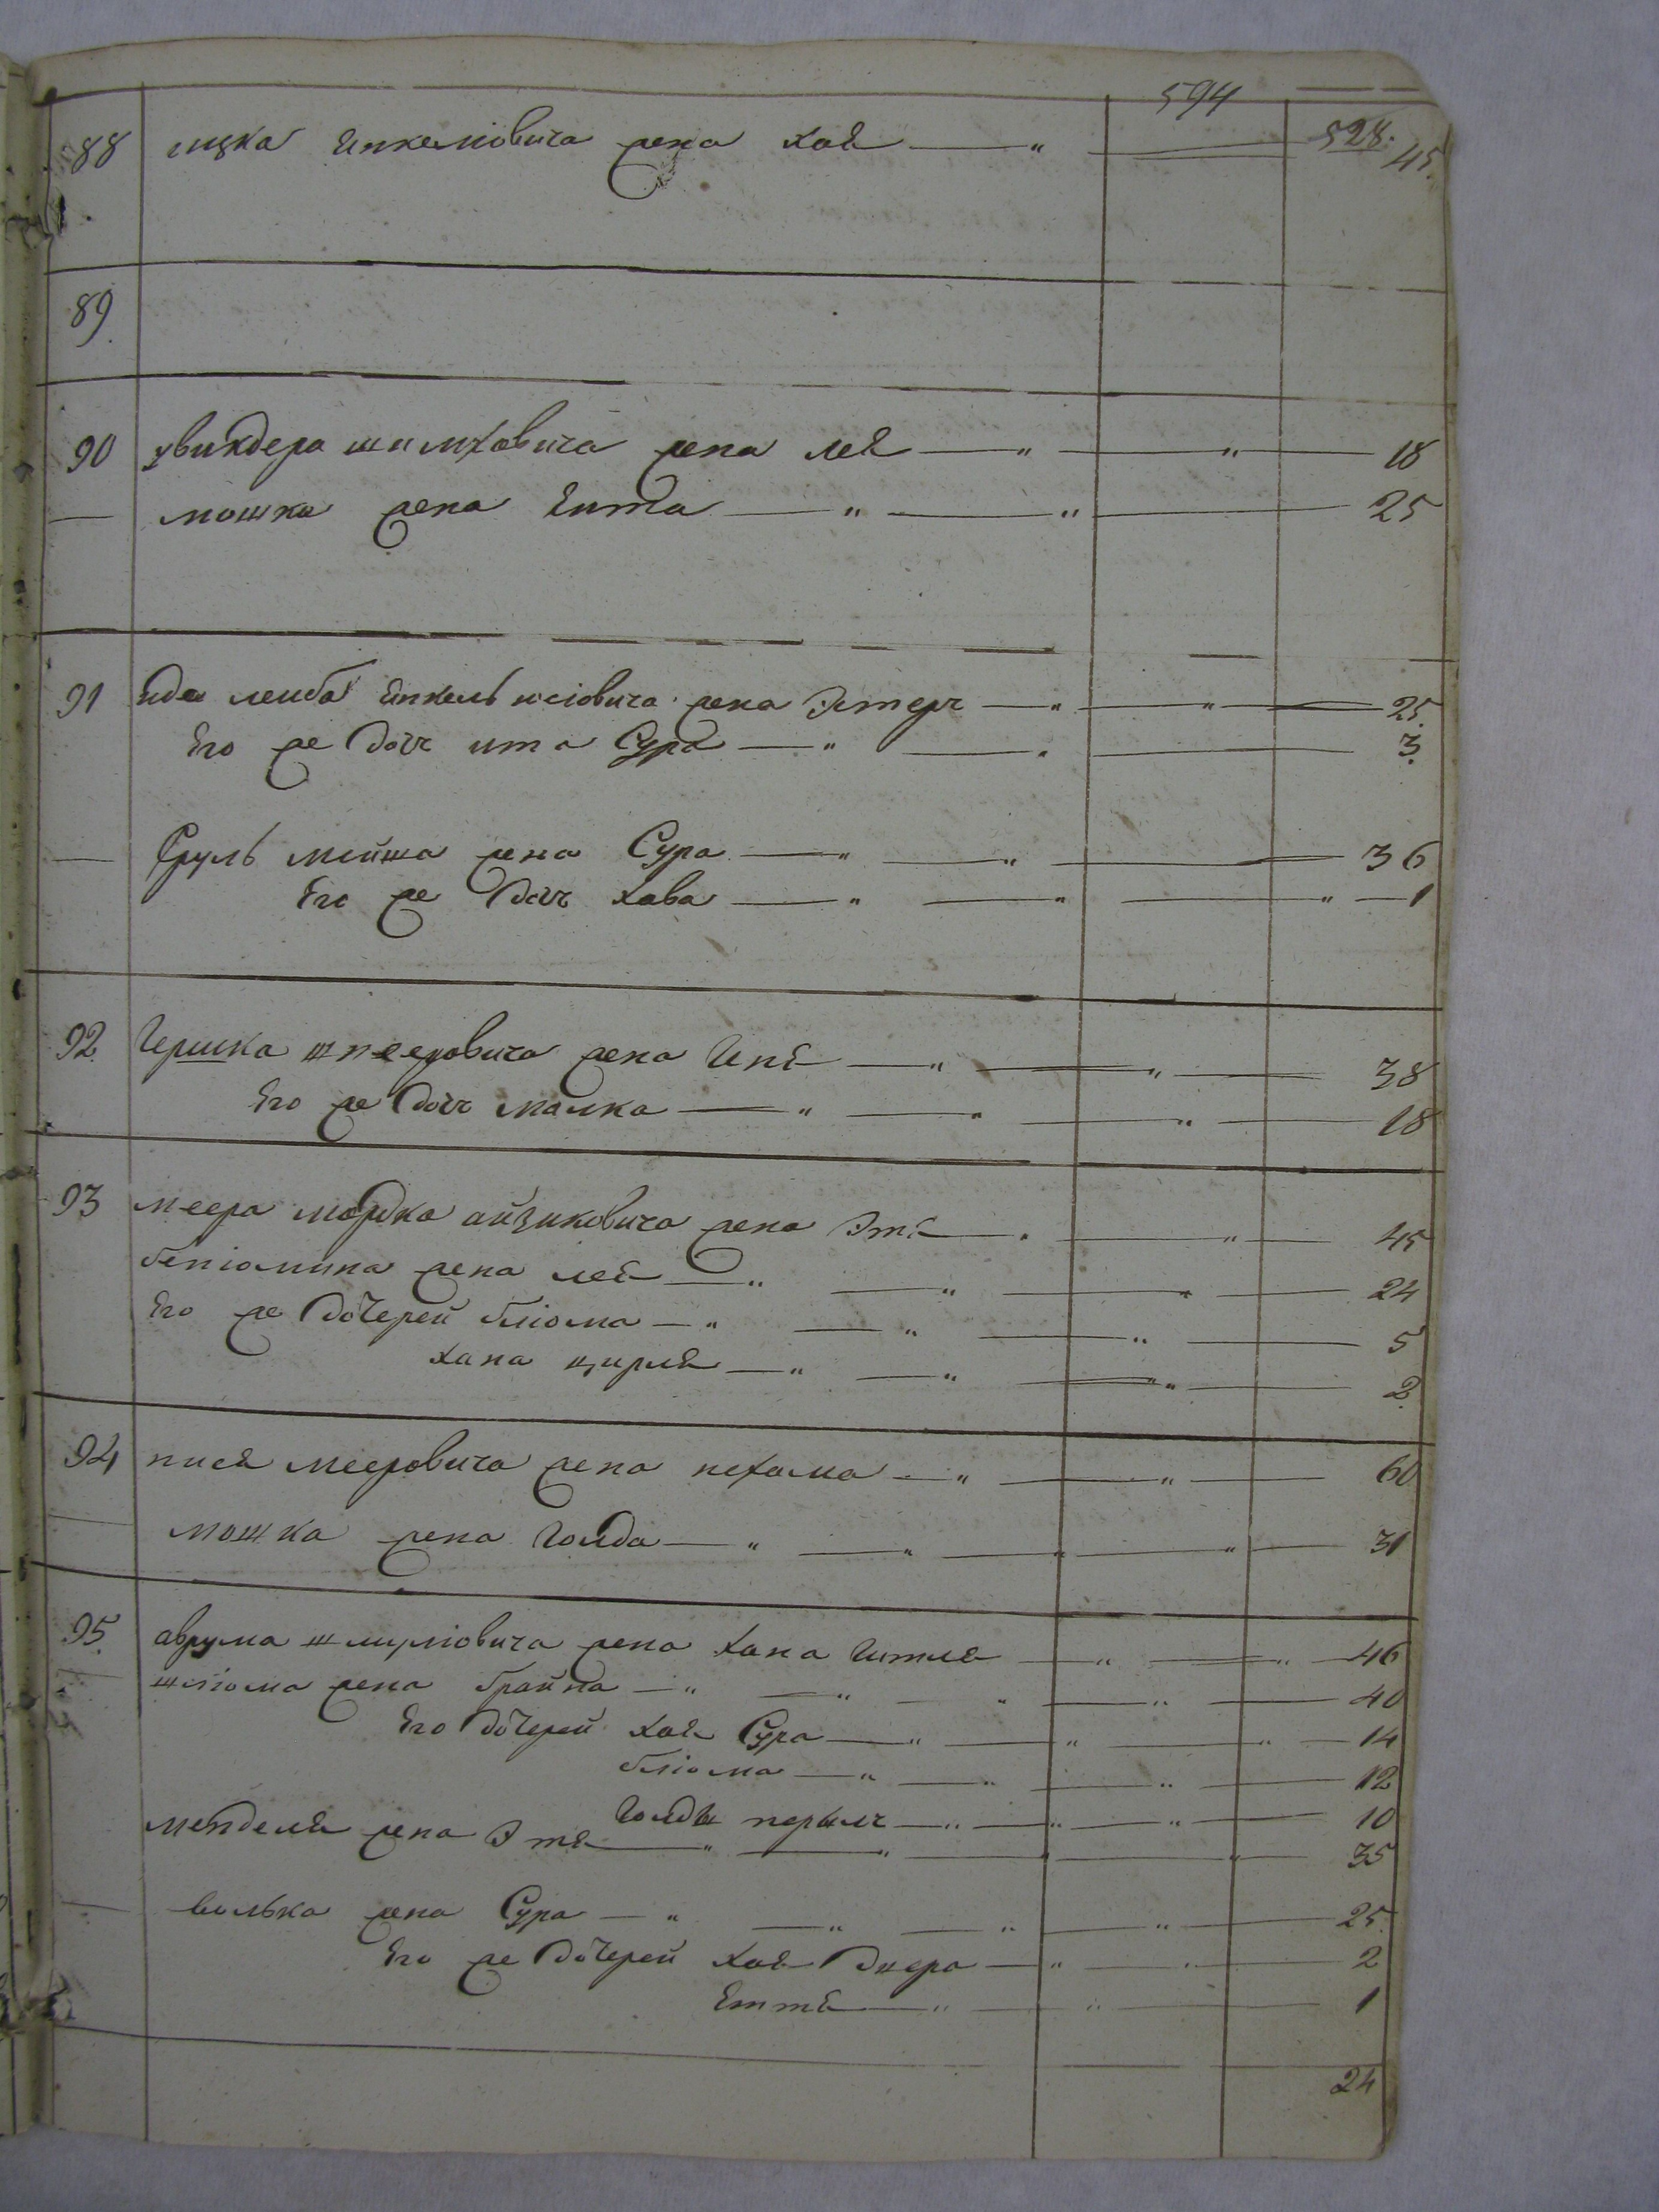 594
528.
88 ицка Янкелiовича жена хая — 45.
89.
90 шимховича жена лея — 18
— мошка жена Ента — 25
91 лейба Янкель жена Эстеръ — 25.
Его же дочь ита Сура — 3.
— Сруль мойша жена Сура — 36
Его же дочь хава — 1
92. Гершка жена — 38
Его же дочь малка — 18
93 меера мордка айзиковича жена Этя — 45
бенiомина жена лея — 24
Его же дочерей блiома — 5
хана цирля — 2.
94 нися мееровича жена нехама — 60
— мошка жена Голда — 31
95. аврума жена хана Гитля — 46
— шлiома жена брайна — 40
Его дочерей хая Сура — 14
блiома — 12
Голды перылъ — 10
менделя жена Этя — 35
— волька жена Сура — 25.
Его же дочерей хая Двера — 2
Еття — 1
24